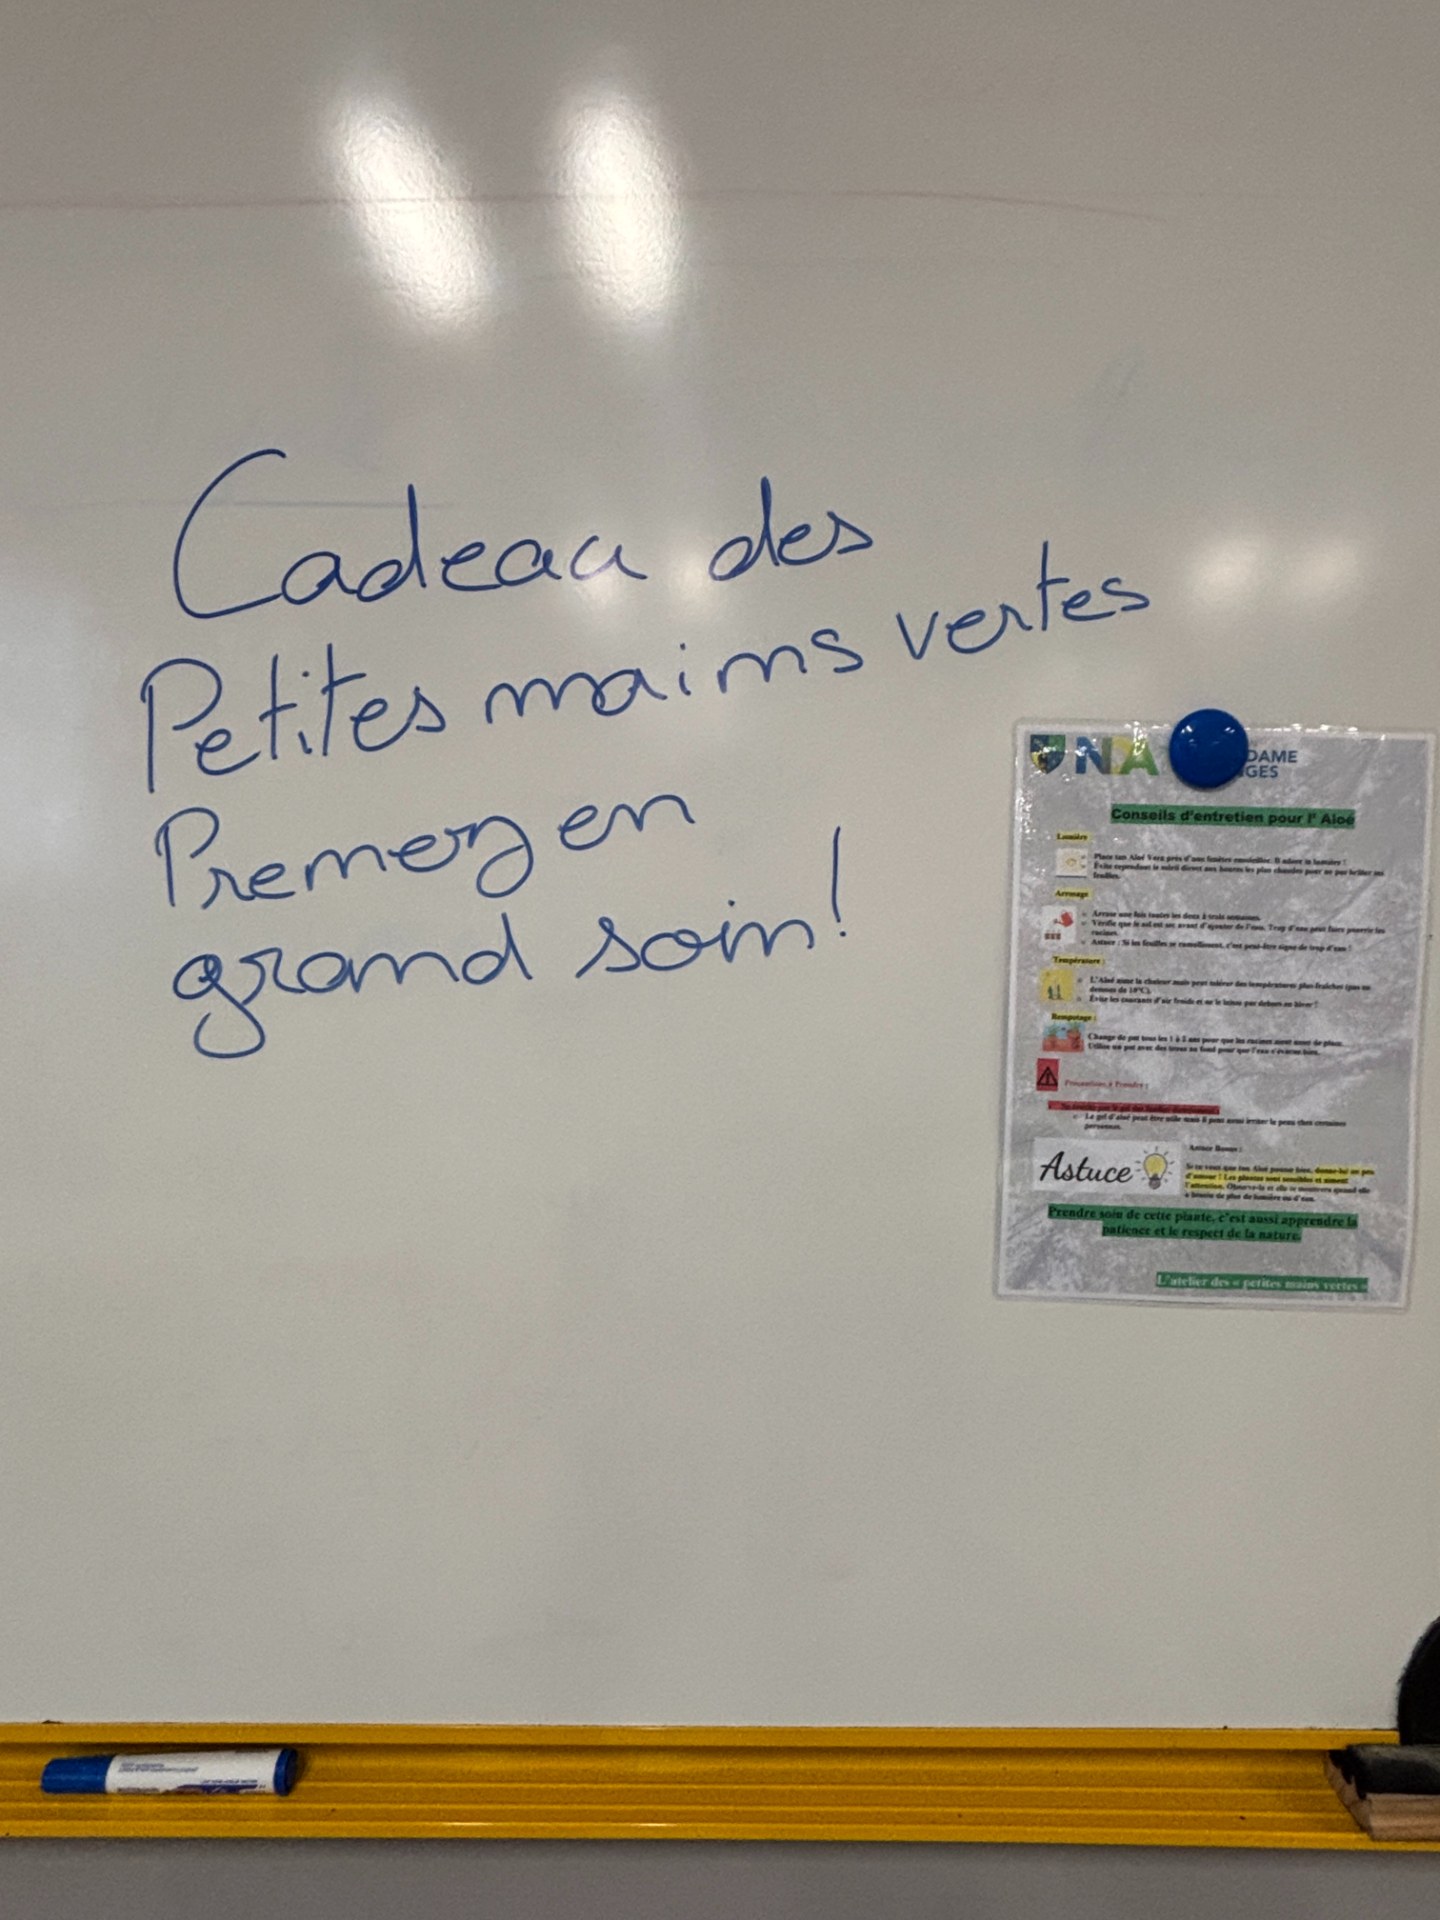 Cadeau des
Petites mains vertes
Prenez en
grand soin !
NDA DAME
GES
Conseils d'entretien pour l' Aloé
Lumière
Place ton Aloé Vera près d'une fenêtre ensoleillée. Il adore la lumière !
Évite cependant le soleil direct aux heures les plus chaudes pour ne pas brûler ses
feuilles.
Arrosage
Arrose une fois toutes les deux à trois semaines.
Vérifie que le sol est sec avant d'ajouter de l'eau. Trop d'eau peut faire pourrir les
racines.
Astuce : Si les feuilles se ramollissent, c'est peut-être signe de trop d'eau !
Température :
L'Aloé aime la chaleur mais peut tolérer des températures plus fraîches (pas en
dessous de 10°C).
Évite les courants d'air froids et ne le laisse pas dehors en hiver !
Rempotage :
Change de pot tous les 1 à 2 ans pour que les racines aient assez de place.
Utilise un pot avec des trous au fond pour que l'eau s'évacue bien.
Précautions à Prendre :
Le gel d'aloé peut être utile mais il peut aussi irriter la peau chez certaines
personnes.
Astuce
Astuce Bonus :
Si tu veux que ton Aloé pousse bien, donne-lui un peu
d'amour ! Les plantes sont sensibles et aiment
l'attention. Observe-la et elle te montrera quand elle
a besoin de plus de lumière ou d'eau.
Prendre soin de cette plante, c'est aussi apprendre la
patience et le respect de la nature.
L'atelier des « petites mains vertes »